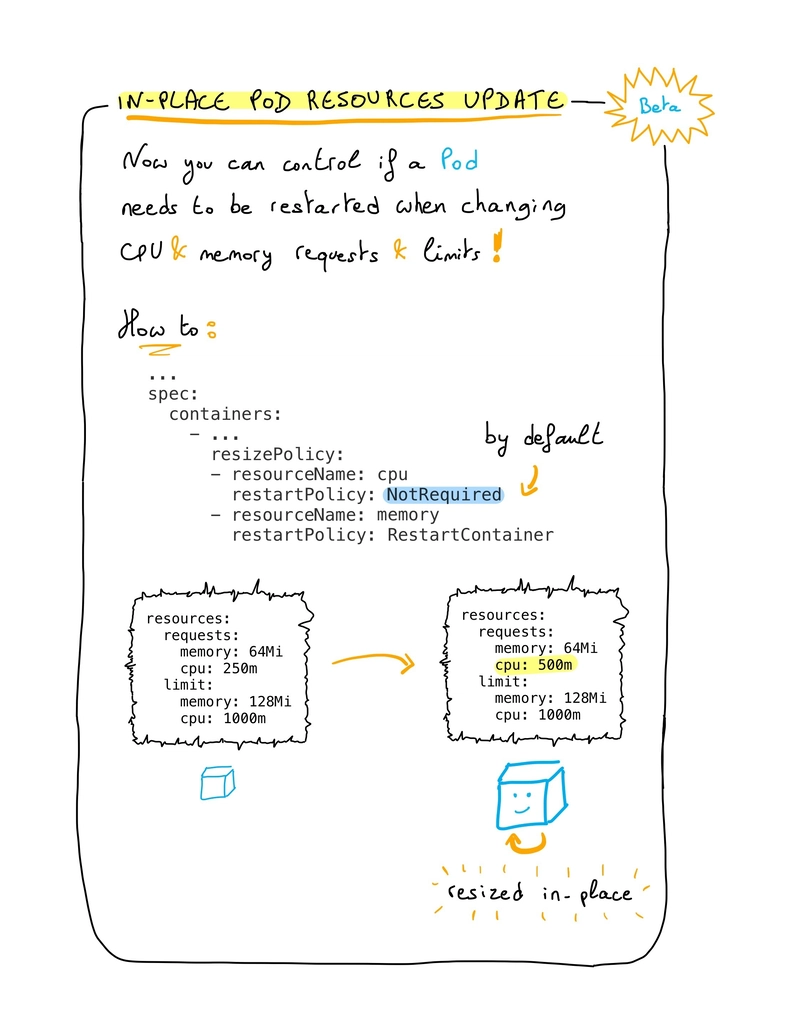 IN-PLACE POD RESOURCES UPDATE
Beta
Now you can control if a Pod
needs to be restarted when changing
CPU & memory requests & limits !
How to :
...
spec:
  containers:
    - ...
      resizePolicy:
      - resourceName: cpu
        restartPolicy: NotRequired
      - resourceName: memory
        restartPolicy: RestartContainer
by default
resources:
  requests:
    memory: 64Mi
    cpu: 250m
  limit:
    memory: 128Mi
    cpu: 1000m
resources:
  requests:
    memory: 64Mi
    cpu: 500m
  limit:
    memory: 128Mi
    cpu: 1000m
resized in-place